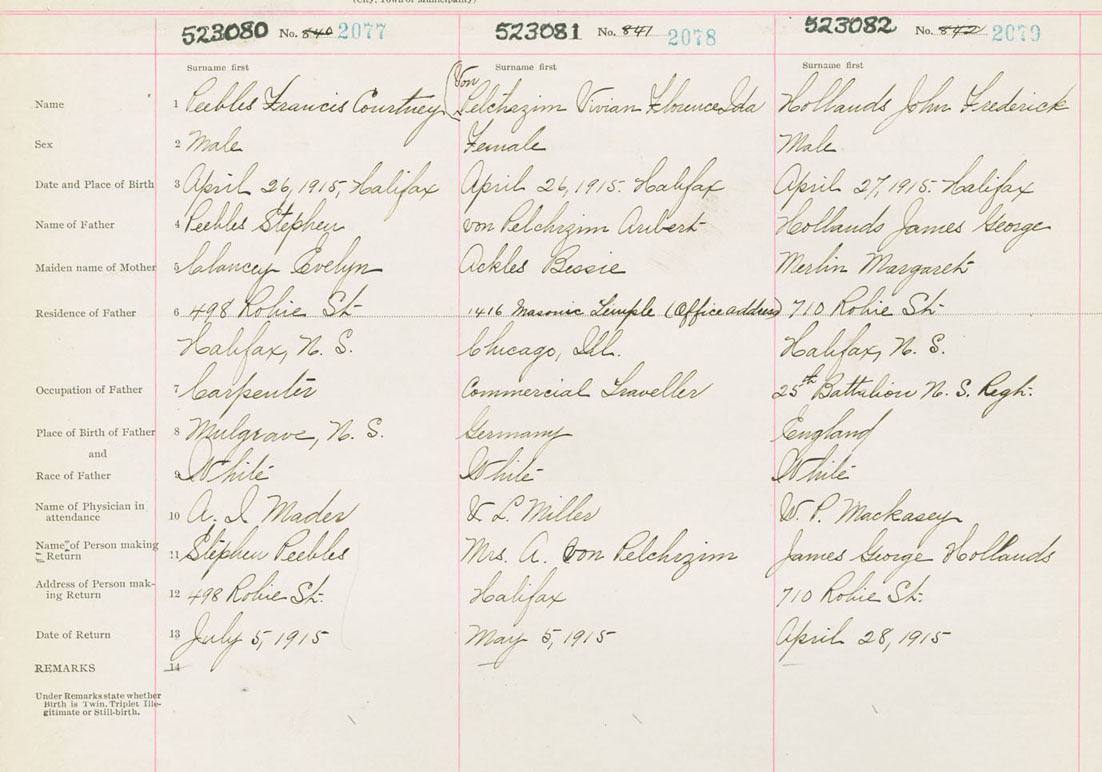 (City, Town or Municipality)
523080 No. 840 2077
523081 No. 841 2078
523082 No. 842 2079
Surname first Surname first Surname first
Name 1 Peebles Francis Courtney (Von Pelchrzim Vivian Florence Ida Hollands John Frederick
Sex 2 Male Female Male
Date and Place of Birth 3 April 26, 1915, Halifax April 26, 1915. Halifax April 27, 1915. Halifax
Name of Father 4 Peebles Stephen von Pelchrzim Aribert Hollands James George
Maiden name of Mother 5 Clancey Evelyn Ackles Bessie Merlin Margaret
Residence of Father 6 498 Robie St. 1416 Masonic Temple (Office address) 710 Robie St.
Halifax, N. S. Chicago, Ill. Halifax, N. S.
Occupation of Father 7 Carpenter Commercial Traveller 25th Battalion N. S. Regt.
Place of Birth of Father 8 Mulgrave, N. S. Germany England
and
Race of Father 9 White White White
Name of Physician in
attendance 10 A. I. Mader L. Miller W. P. Mackasey
Name of Person making
Return 11 Stephen Peebles Mrs. A. von Pelchrzim James George Hollands
Address of Person mak-
ing Return 12 498 Robie St. Halifax 710 Robie St.
Date of Return 13 July 5, 1915 May 5, 1915 April 28, 1915
REMARKS 14
Under Remarks state whether
Birth is Twin, Triplet Ille-
gitimate or Still-birth.